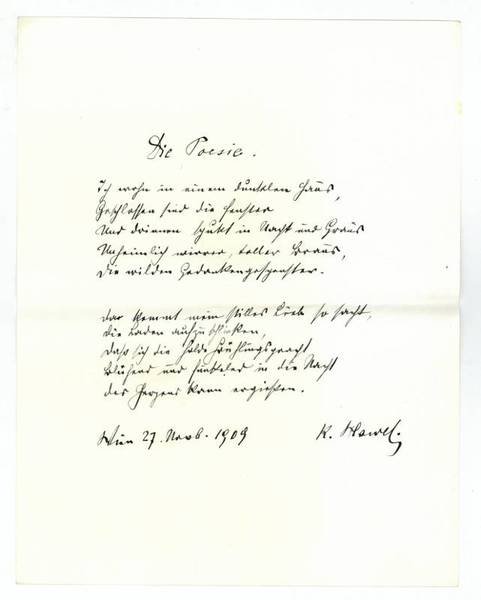 Die Poesie.
Ich wohn in einem dunklen Haus,
Geschlossen sind die Fenster
Und drinnen spukt in Nacht und Graus
Unheimlich wirrer, toller Braus,
Die wilden Gedankengespenster.
Da kommt mein stilles Lieb so sacht,
Die Laden aufzuklinken,
Daß sich die holde Frühlingspracht
Blühend und funkelnd in die Nacht
des Herzens kann ergießen.
Wien 27. Novb. 1909
K. Hawel.